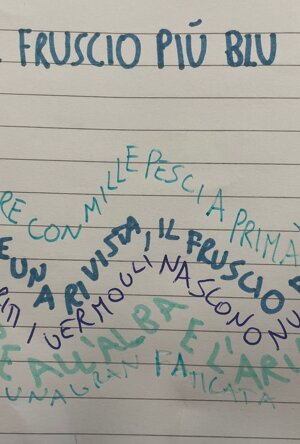 FRUSCIO PIÚ BLU
RE CON MILLE PESCI A PRIMA
E UN A RIVISTA, IL FRUSCIO
I VERMOULI NASCONO NU
E ALL'ALBA E L'ARI
UNA GRAN FATICATA